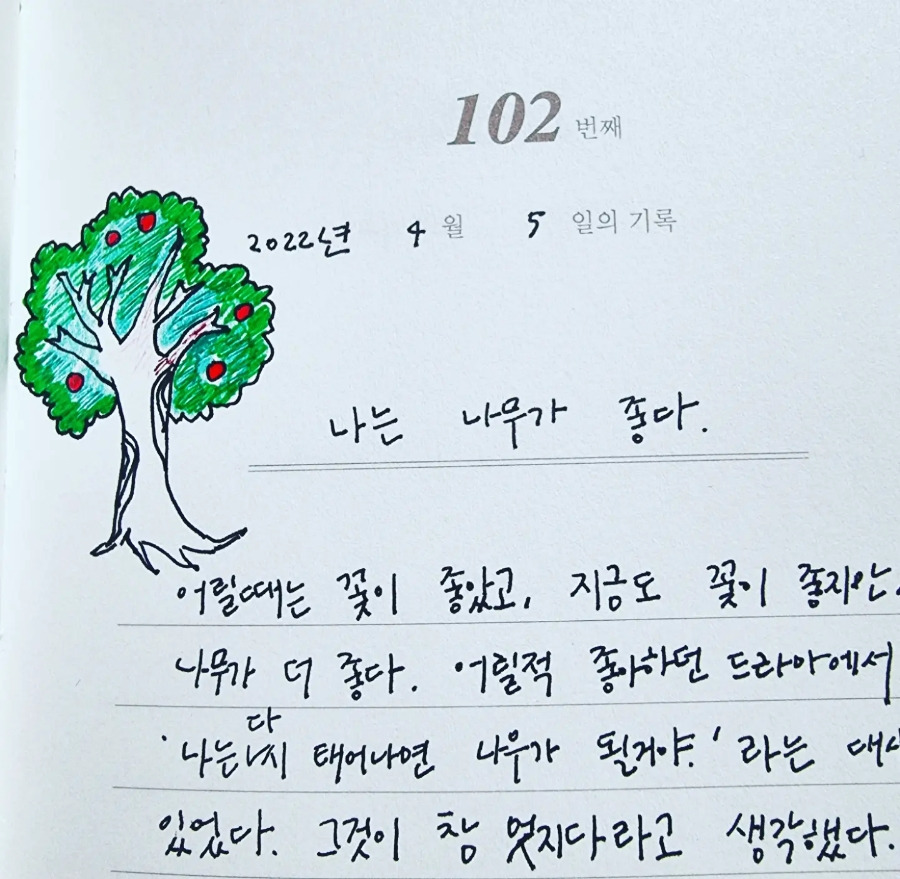 102 번째
2022년 4 월 5 일의 기록
나는 나무가 좋다.
어릴때는 꽃이 좋았고, 지금도 꽃이 좋지만,
나무가 더 좋다. 어릴적 좋아하던 드라마에서
'나는 다시 태어나면 나무가 될거야.' 라는
있었다. 그것이 참 멋지다라고 생각했다.